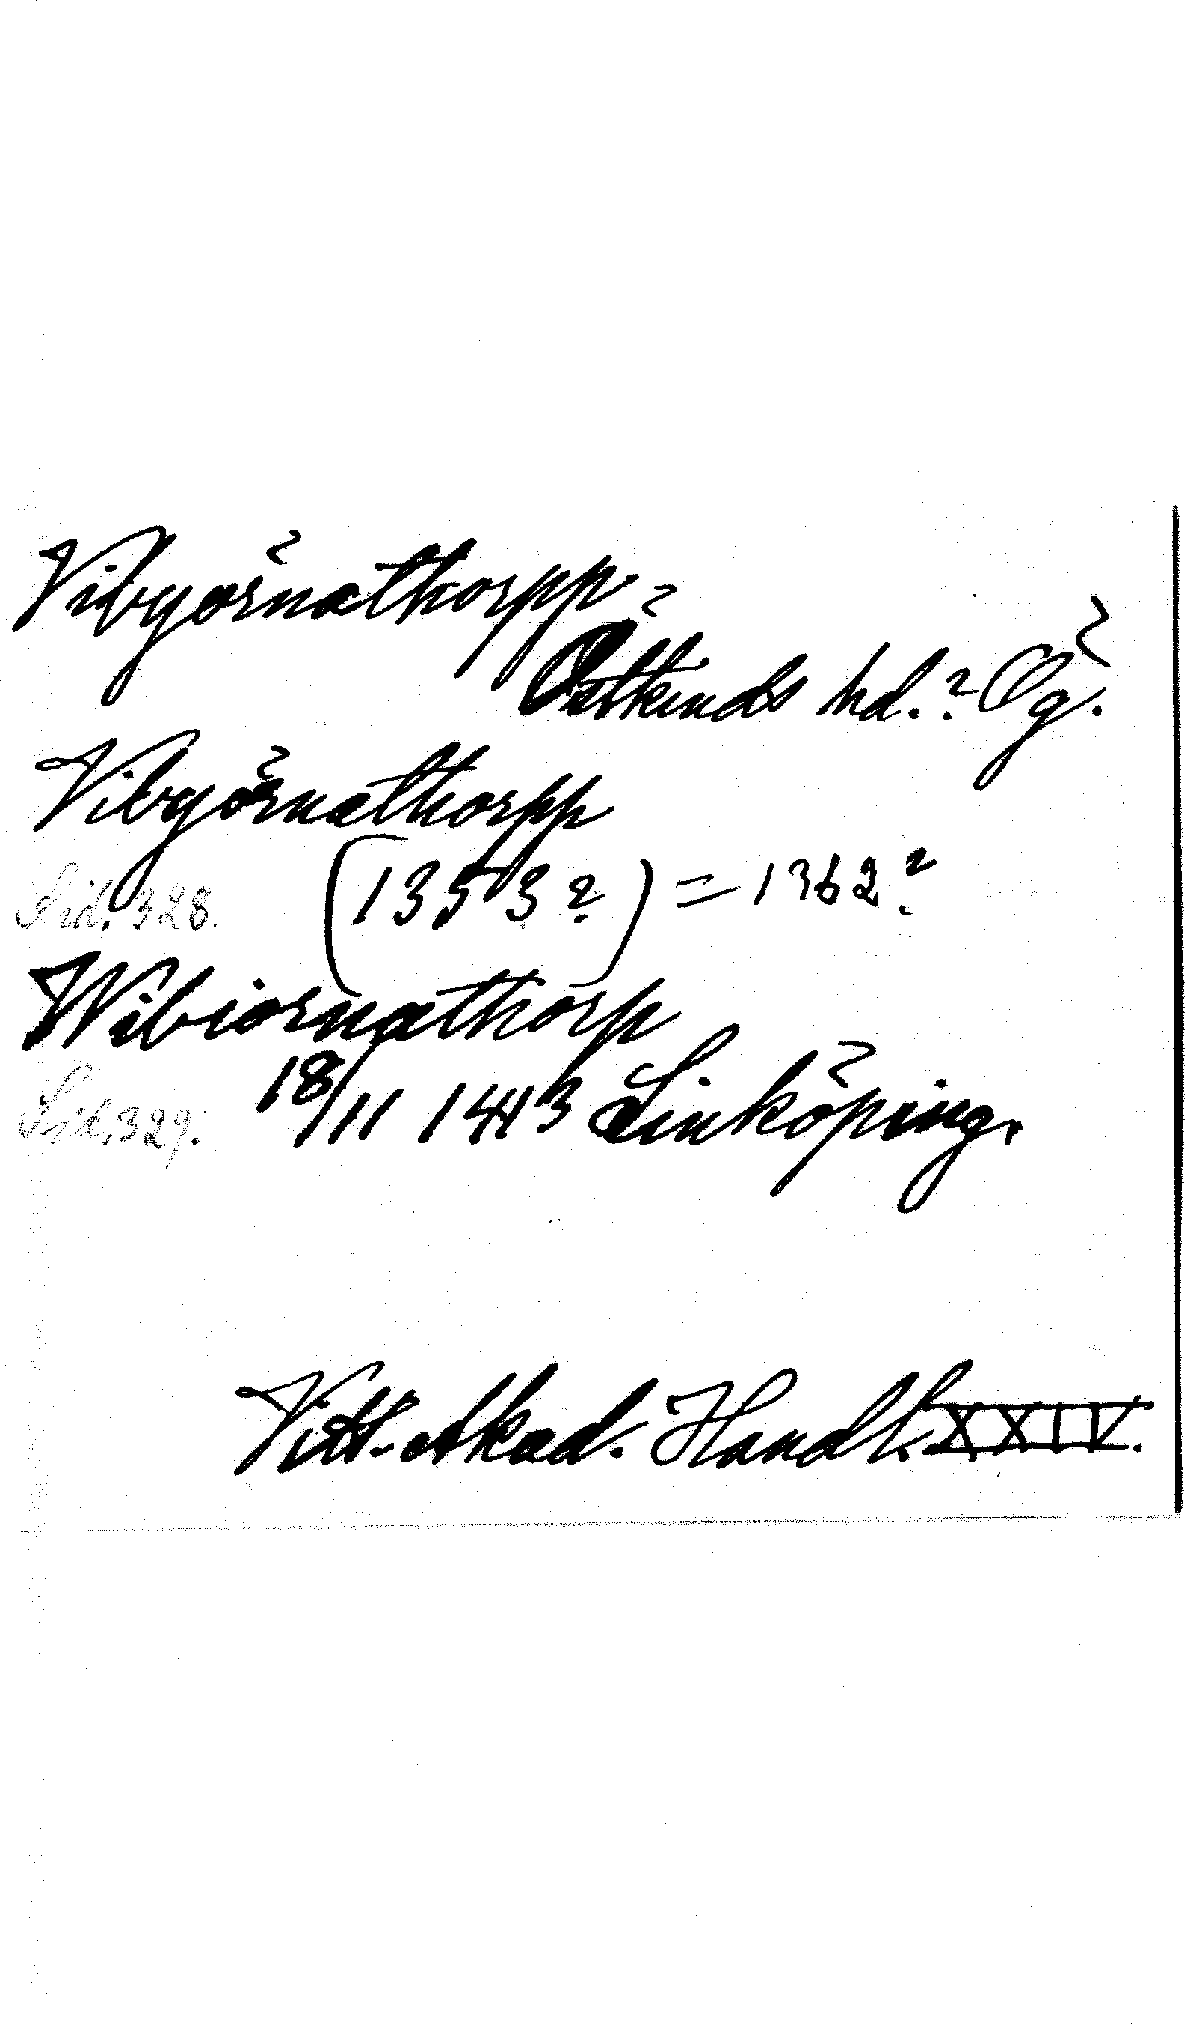 Vibyörnathorpp
Östkinds hd.? Ög.
Vibyörnathorpp
Sid. 328. (1353?) = 1362?
Wibiornathorp
Sid. 329. 18/11 1413 Linköping.
Vitt. Akad. Handl. XXIV.